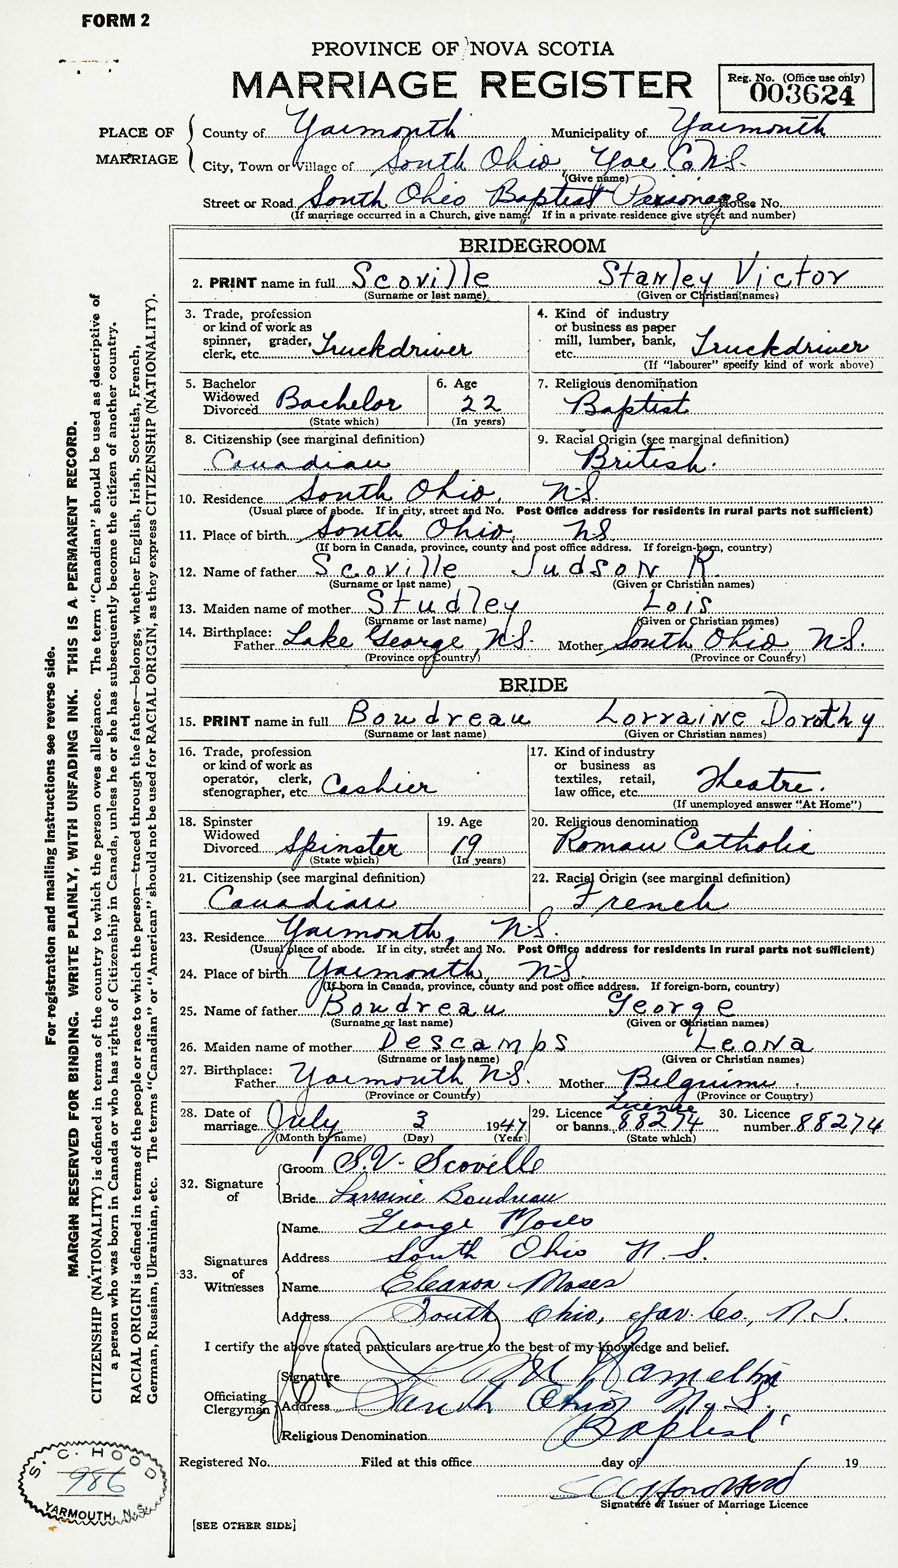 FORM 2
PROVINCE OF NOVA SCOTIA
MARRIAGE REGISTER
Reg. No. (Office use only)
003624
PLACE OF MARRIAGE
County of Yarmouth Municipality of Yarmouth
City, Town or Village of South Ohio Yar. Co. N.S.
(Give name)
Street or Road South Ohio Baptist Parsonage House No.
(If marriage occurred in a Church, give name. If in a private residence give street and number)
BRIDEGROOM
2. PRINT name in full Scoville Stanley Victor
(Surname or last name) (Given or Christian names)
3. Trade, profession or kind of work as spinner, grader, clerk, etc. Truckdriver
4. Kind of industry or business as paper mill, lumber, bank, etc. Truckdriver
(If "labourer" specify kind of work above)
5. Bachelor Widowed Divorced Bachelor
(State which)
6. Age 22
(In years)
7. Religious denomination
Baptist
8. Citizenship (see marginal definition)
Canadian
9. Racial Origin (see marginal definition)
British.
10. Residence South Ohio, N.S.
(Usual place of abode. If in city, street and No. Post Office address for residents in rural parts not sufficient)
11. Place of birth South Ohio, NS
(If born in Canada, province, county and post office address. If foreign-born, country)
12. Name of father Scoville Judson R.
(Surname or last name) (Given or Christian names)
13. Maiden name of mother Studley Lois
(Surname or last name) (Given or Christian names)
14. Birthplace: Father Lake George, N.S. Mother South Ohio, N.S.
(Province or Country) (Province or Country)
BRIDE
15. PRINT name in full Boudreau Lorraine Dorothy
(Surname or last name) (Given or Christian names)
16. Trade, profession or kind of work as operator, clerk, stenographer, etc. Cashier
17. Kind of industry or business as textiles, retail, law office, etc. Theatre.
(If unemployed answer "At Home")
18. Spinster Widowed Divorced Spinster
(State which)
19. Age 19
(In years)
20. Religious denomination
Roman Catholic
21. Citizenship (see marginal definition)
Canadian
22. Racial Origin (see marginal definition)
French
23. Residence Yarmouth, N.S.
(Usual place of abode. If in city, street and No. Post Office address for residents in rural parts not sufficient)
24. Place of birth Yarmouth, N.S.
(If born in Canada, province, county and post office address. If foreign-born, country)
25. Name of father Boudreau George
(Surname or last name) (Given or Christian names)
26. Maiden name of mother Descamps Leona
(Surname or last name) (Given or Christian names)
27. Birthplace: Father Yarmouth, N.S. Mother Belguim.
(Province or Country) (Province or Country)
28. Date of marriage July 3 1947
(Month by name) (Day) (Year)
29. Licence or banns License 88274
(State which)
30. Licence number 88274
32. Signature of
Groom S.V. Scoville
Bride Lorraine Boudreau
33. Signatures of Witnesses
Name George Moses
Address South Ohio N.S.
Name Eleanor Moses
Address South Ohio, Yar. Co., N.S.
I certify the above stated particulars are true to the best of my knowledge and belief.
Officiating Clergyman
Signature
Address South Ohio N.S.
Religious Denomination Baptist
Registered No. Filed at this office day of 19
Signature of Issuer of Marriage Licence
[SEE OTHER SIDE]
S. C. HOOD
986
YARMOUTH, N.S.
For registration and mailing instructions see reverse side.
MARGIN RESERVED FOR BINDING. WRITE PLAINLY, WITH UNFADING INK. THIS IS A PERMANENT RECORD.
CITIZENSHIP (NATIONALITY) is defined in terms of the country to which the person owes allegiance. The term "Canadian" should be used as descriptive of
a person who was born in Canada or who has rights of Citizenship in Canada, unless he or she has subsequently become the citizen of another country.
RACIAL ORIGIN is defined in terms of the people or race to which the person—traced through the father—belongs, whether English, Irish, Scottish, French,
German, Russian, Ukrainian, etc. The terms "Canadian" or "American" should not be used for RACIAL ORIGIN, as they express CITIZENSHIP (NATIONALITY).